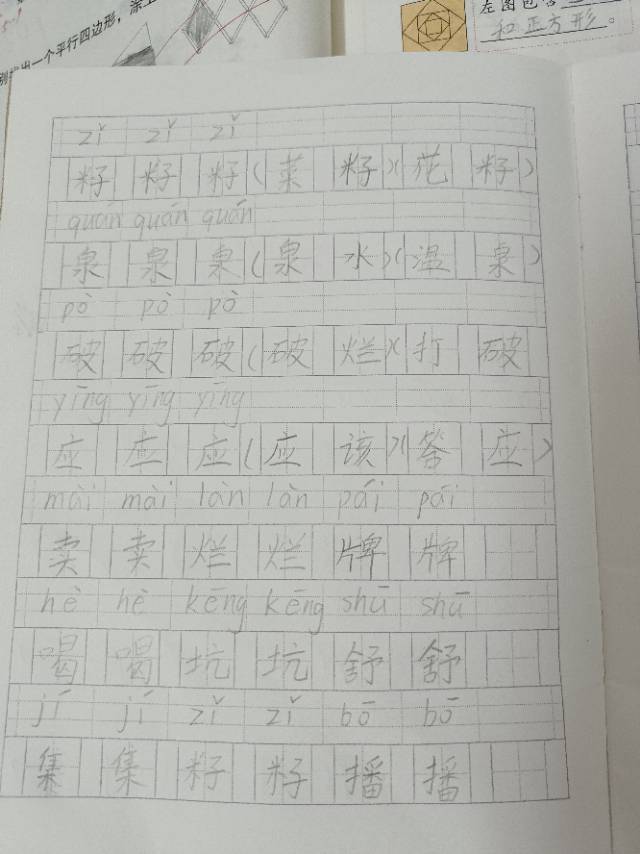 出一个平行四边形，涂上
左图包含
和正方形。
zǐ zǐ zǐ
籽 籽 籽 ( 菜 籽 ) ( 花 籽 )
quán quán quán
泉 泉 泉 ( 泉 水 ) ( 温 泉 )
pò pò pò
破 破 破 ( 破 烂 ) ( 打 破
yīng yīng yīng
应 应 应 ( 应 该 ) ( 答 应 )
mài mài làn làn pái pái
卖 卖 烂 烂 牌 牌
hè hè kēng kēng shū shū
喝 喝 坑 坑 舒 舒
jí jí zǐ zǐ bō bō
集 集 籽 籽 播 播